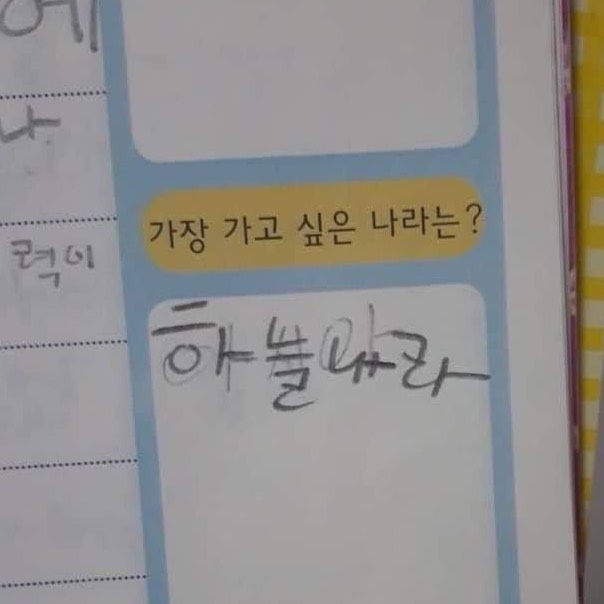 에
나
력이
가장 가고 싶은 나라는?
하늘나라